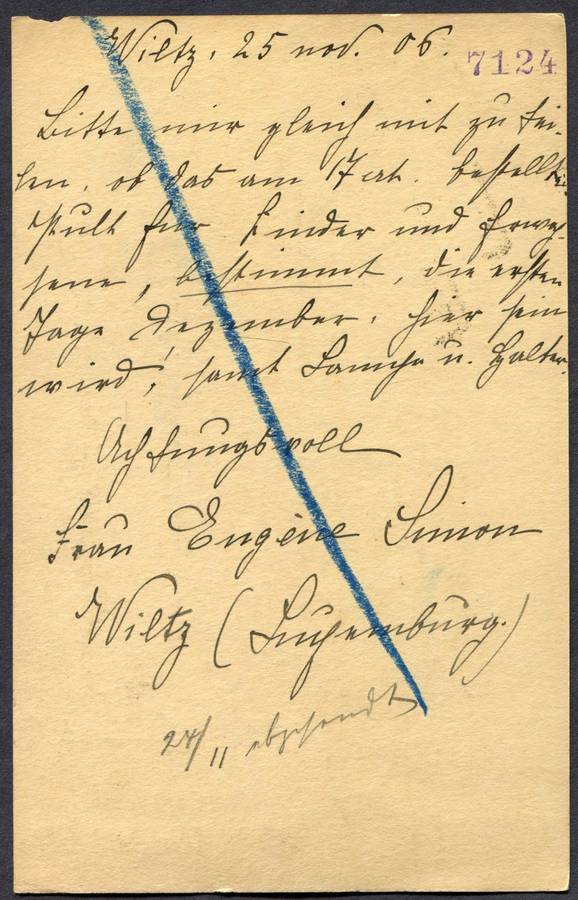 Wiltz, 25 nov. 06.
7124
Bitte mir gleich mit zu tei-
len, ob das am 17 ct. bestellte
Pult für Kinder und Erwach-
sene, bestimmt, die ersten
Tage Dezember, hier sein
wird, samt Lampe u. Halter.
Achtungsvoll
Frau Eugène Simon
Wiltz (Luxemburg.)
27/11 abgesandt